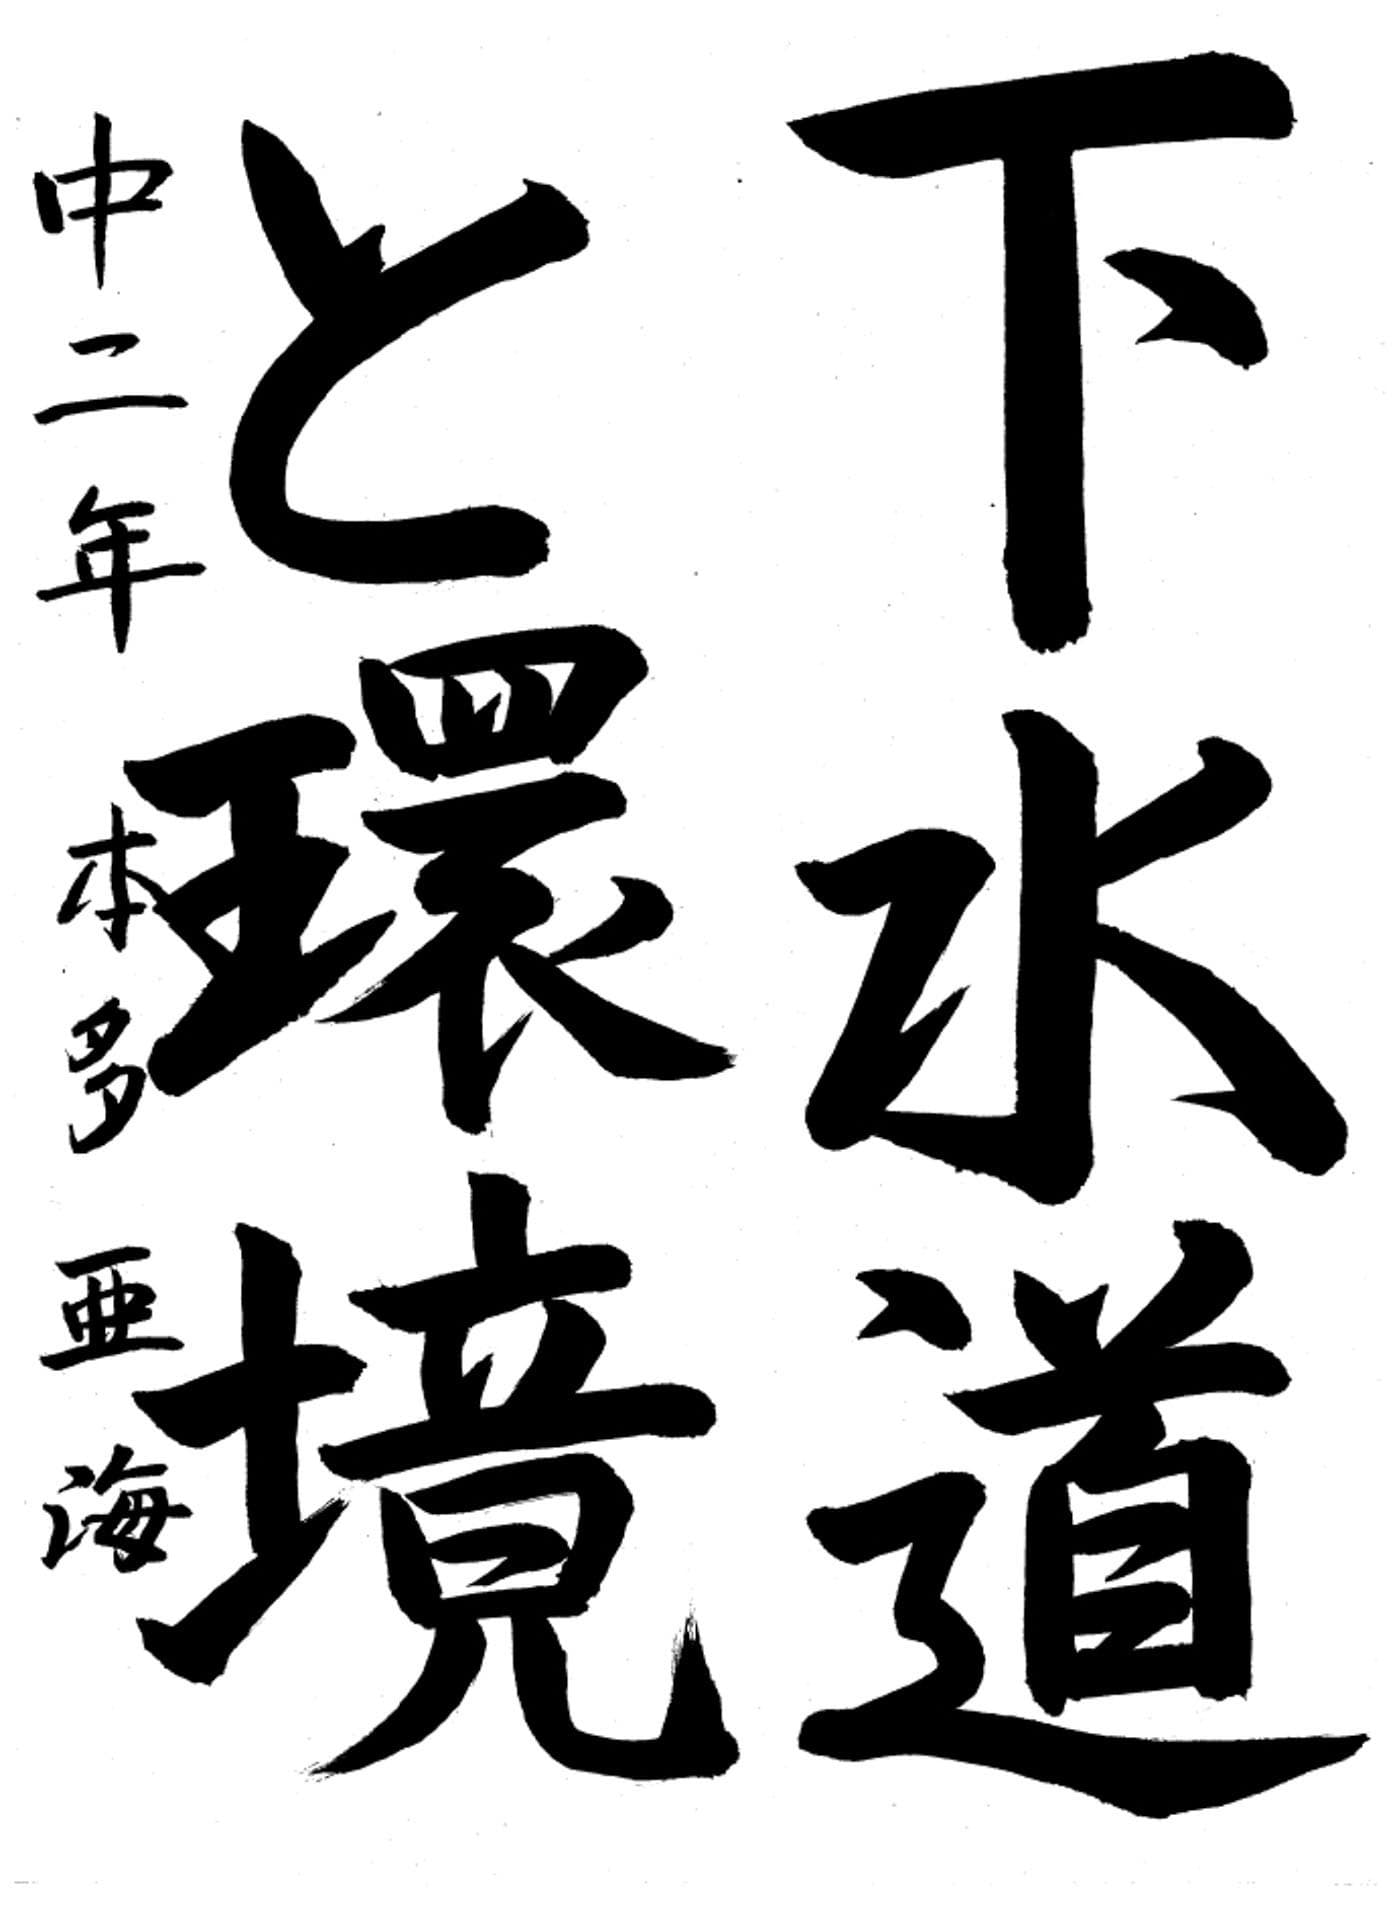 下水道
と環境
中二年 本多 亜海